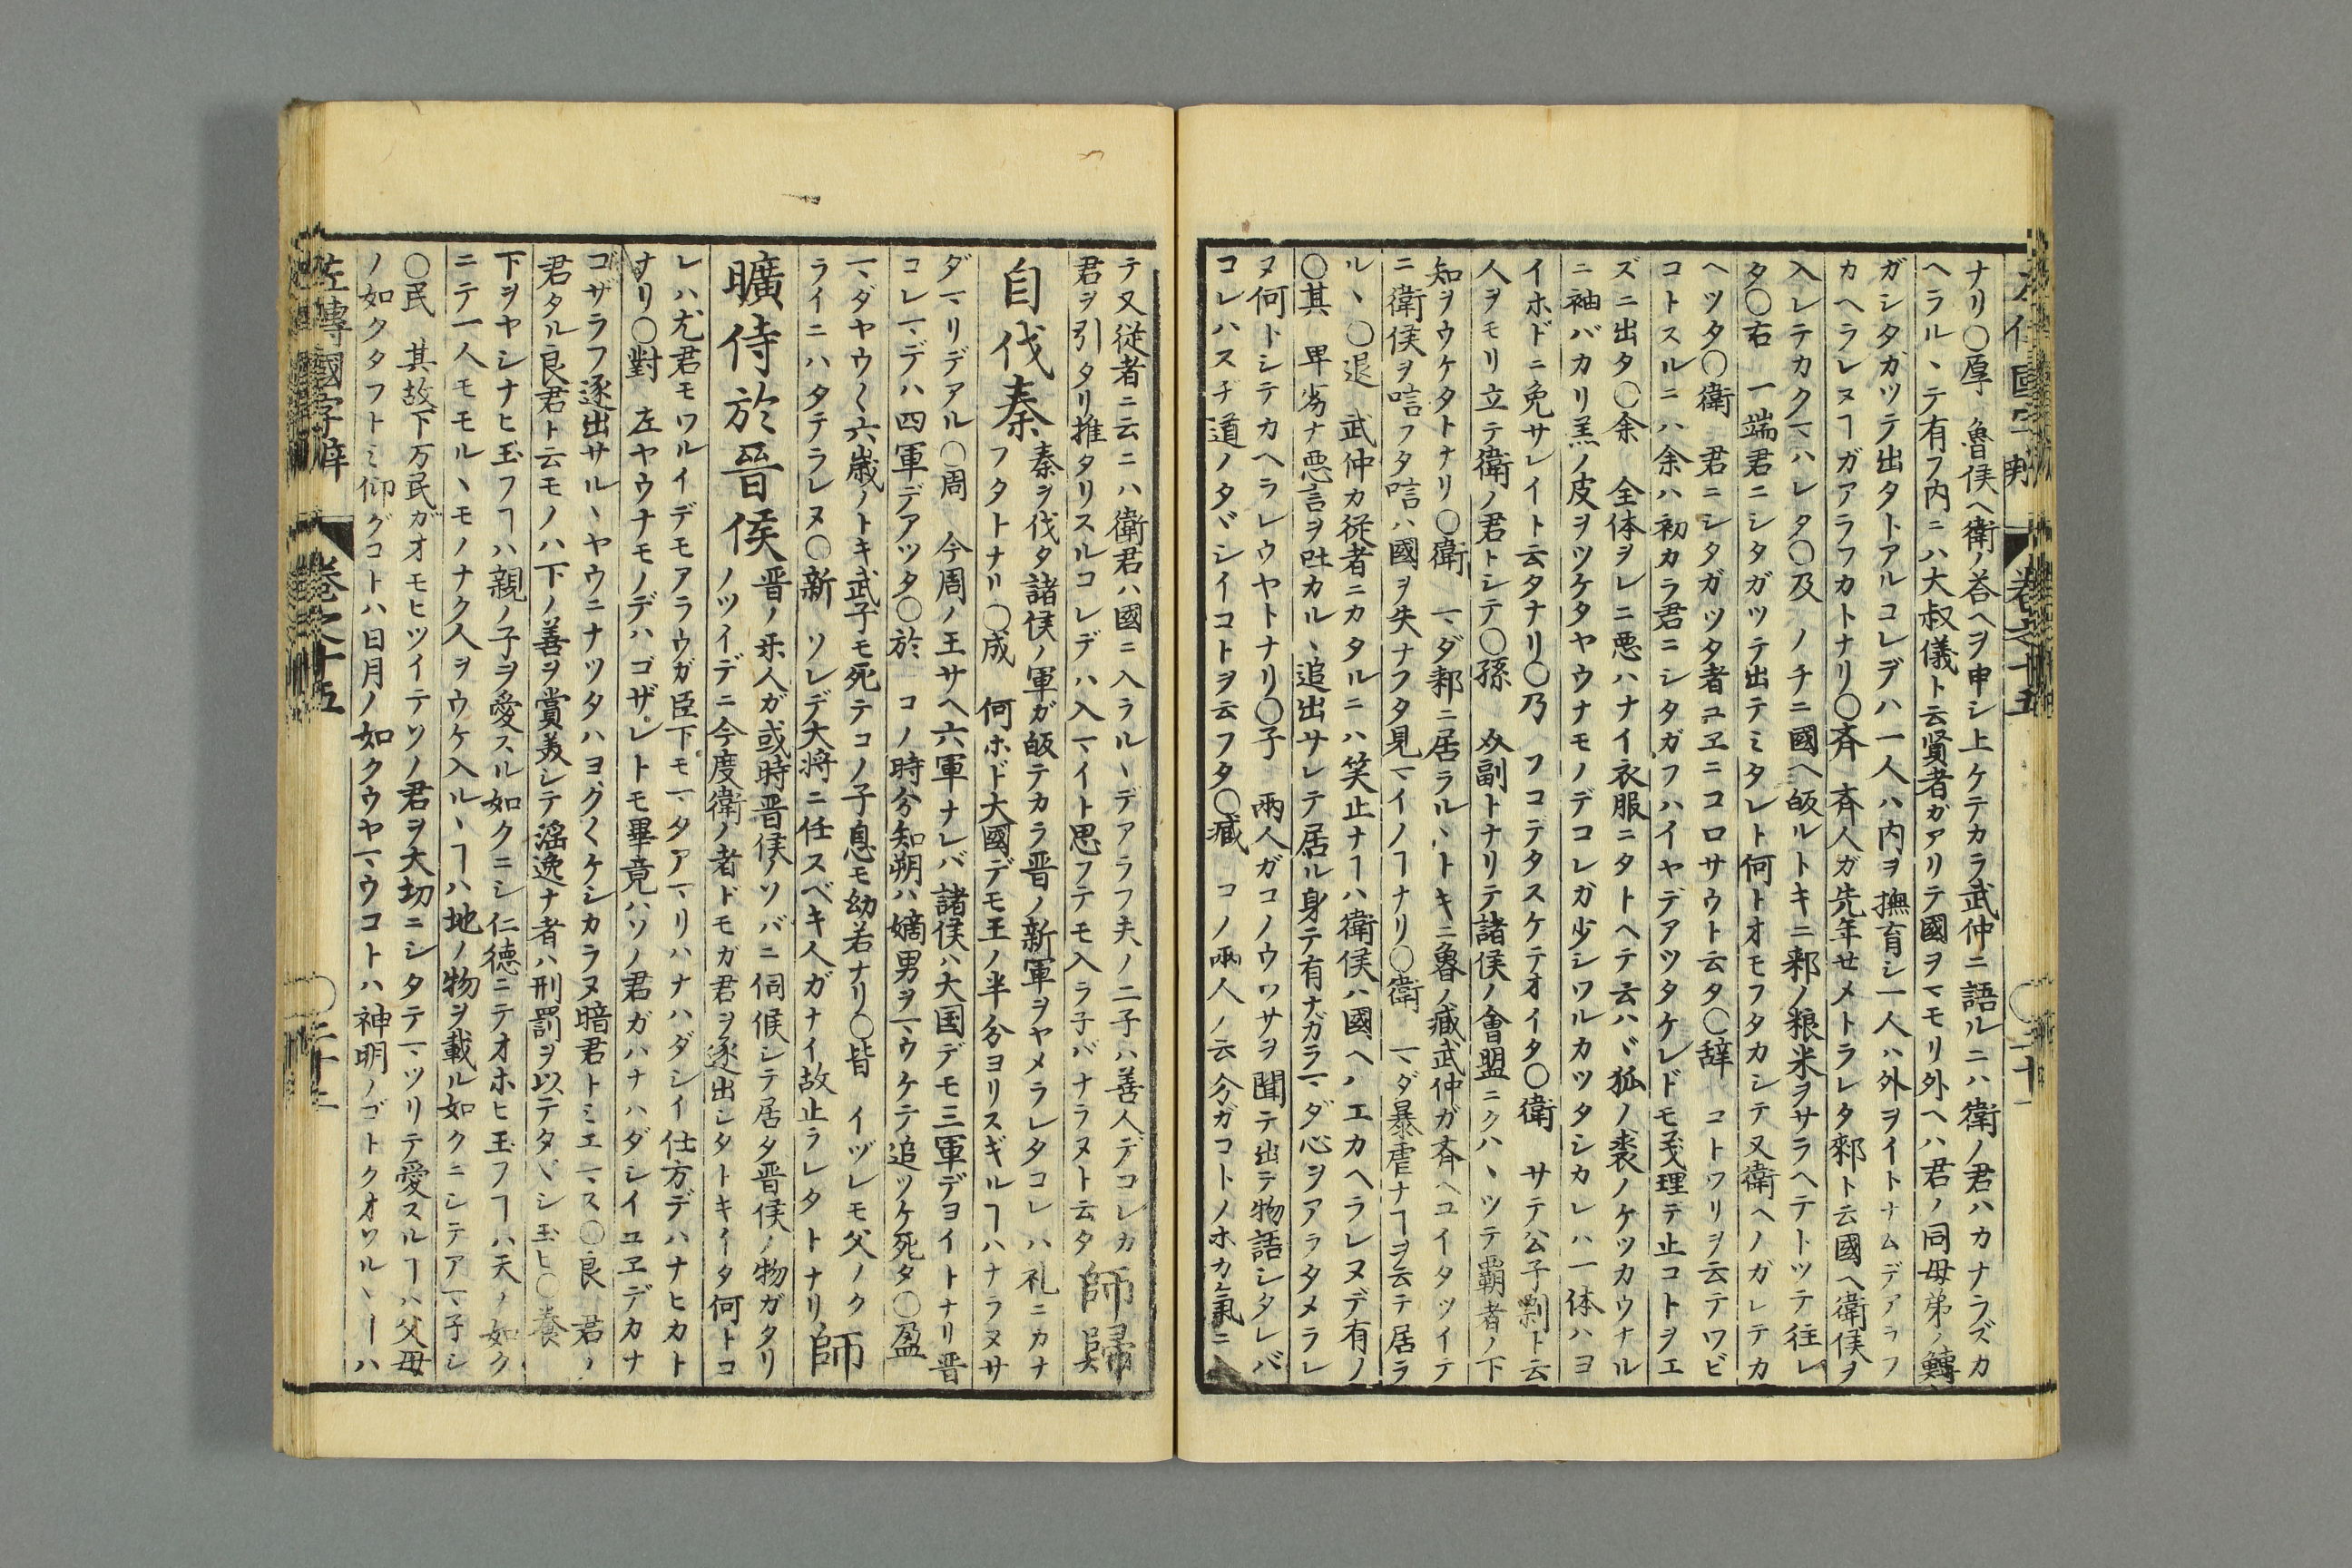 左傳國字辨 巻之十五 〇二十一
ナリ〇厚 魯侯ヘ衛ノ荅ヘヲ申シ上ケテカラ武仲ニ語ルニハ衛ノ君ハカナラズカ
ヘラルヽテ有フ内ニハ大叔儀ト云賢者ガアリテ國ヲマモリ外ヘハ君ノ同母弟ノ鱄
ガシタガツテ出タトアルコレデハ一人ハ内ヲ撫育シ一人ハ外ヲイトナムデアラフ
カヘラレヌヿガアラフカトナリ〇斉 斉人ガ先年せメトラレタ郲ト云國ヘ衛侯ヲ
入レテカクマハレタ〇及 ノチニ國ヘ皈ルトキニ郲ノ粮米ヲサラヘテトツテ往レ
タ〇右 一端君ニシタガツテ出テミタレト何トオモフタカシテ又衛ヘノガレテカ
ヘツタ〇衛 君ニシタガツタ者ユヱニコロサウト云タ〇辞 コトワリヲ云テワビ
コトスルニハ余ハ初カラ君ニシタガフハイヤデアツタケレドモ義理テ止コトヲエ
ズニ出タ〇余 全体ヲレニ悪ハナイ衣服ニタトヘテ云ハヾ狐ノ裘ノケツカウナル
ニ袖バカリ羔ノ皮ヲツケタヤウナモノデコレガ少シワルカツタシカレハ一体ハヨ
イホドニ免サレイト云タナリ〇乃 フコデタスケテオイタ〇衛 サテ公子剽ト云
人ヲモリ立テ衛ノ君トシテ〇孫 㕛副トナリテ諸侯ノ會盟ニクハヽツテ覇者ノ下
知ヲウケタトナリ〇衛 マダ郲ニ居ラルヽトキニ魯ノ臧武仲ガ斉ヘユイタツイテ
ニ衛侯ヲ唁フタ唁ハ國ヲ失ナフタ見マイノヿナリ〇衛 マダ暴虐ナヿヲ云テ居ラ
ルヽ〇退 武仲カ従者ニカタルニハ笑止ナヿハ衛侯ハ國ヘハエカヘラレヌデ有ノ
〇其 卑劣ナ悪言ヲ吐カルヽ追出サレテ居ル身テ有ナガラマダ心ヲアラタメラレ
ヌ何トシテカヘラレウヤトナリ〇子 兩人ガコノウワサヲ聞テ出テ物語シタレバ
コレハスヂ道ノタヾシイコトヲ云フタ〇臧 コノ兩人ノ云分ガコトノホカ氣ニ
テ又従者ニ云ニハ衛君ハ國ニ入ラルヽデアラフ夫ノ二子ハ善人デコレカ 師歸
君ヲ引タリ推タリスルコレデハ入マイト思フテモ入ラ子バナラヌト云タ
自伐秦 秦ヲ伐タ諸侯ノ軍ガ皈テカラ晋ノ新軍ヲヤメラレタコレハ礼ニカナ
フタトナリ〇成 何ホド大國デモ王ノ半分ヨリスギルヿハナラヌサ
ダマリデアル〇周 今周ノ王サヘ六軍ナレバ諸侯ハ大国デモ三軍デヨイトナリ晋
コレマデハ四軍デアツタ〇於 コノ時分知朔ハ嫡男ヲマウケテ追ツケ死タ〇盈
マダヤウ〱六歳ノトキ武子モ死テコノ子息モ幼若ナリ〇皆 イヅレモ父ノク
ライニハタテラレヌ〇新 ソレデ大将ニ任スベキ人ガナイ故止ラレタトナリ 師
曠侍於晉侯 晋ノ楽人ガ或時晋侯ノソバニ伺候シテ居タ晋侯ノ物ガタリ
ノツイデニ今度衛ノ者ドモガ君ヲ逐出シタトキイタ何トコ
レハ尤君モワルイデモアラウガ臣下モマタアマリハナハダシイ仕方デハナヒカト
ナリ〇對 左ヤウナモノデハゴザレトモ畢竟ハソノ君ガハナハダシイユヱデカナ
ゴザラフ逐出サルヽヤウニナツタハヨグ〱ケシカラヌ暗君トミエマス〇良 君ノ
君タル良君ト云モノハ下ノ善ヲ賞羙シテ滛逸ナ者ハ刑罰ヲ以テタヾシ玉ヒ〇養
下ヲヤシナヒ玉フヿハ親ノ子ヲ愛スル如クニシ仁徳ニテオホヒ玉フヿハ天ノ如ク
ニテ一人モモルヽモノナク人ヲウケ入ルヽヿハ地ノ物ヲ載ル如クニシテアマ子シ
〇民 其故下万民ガオモヒツイテソノ君ヲ大切ニシタテマツリテ愛スルヿハ父母
ノ如クタフトミ仰グコトハ日月ノ如クウヤマウコトハ神明ノゴトクオソルヽヿハ
左傳國字辨 巻之十五